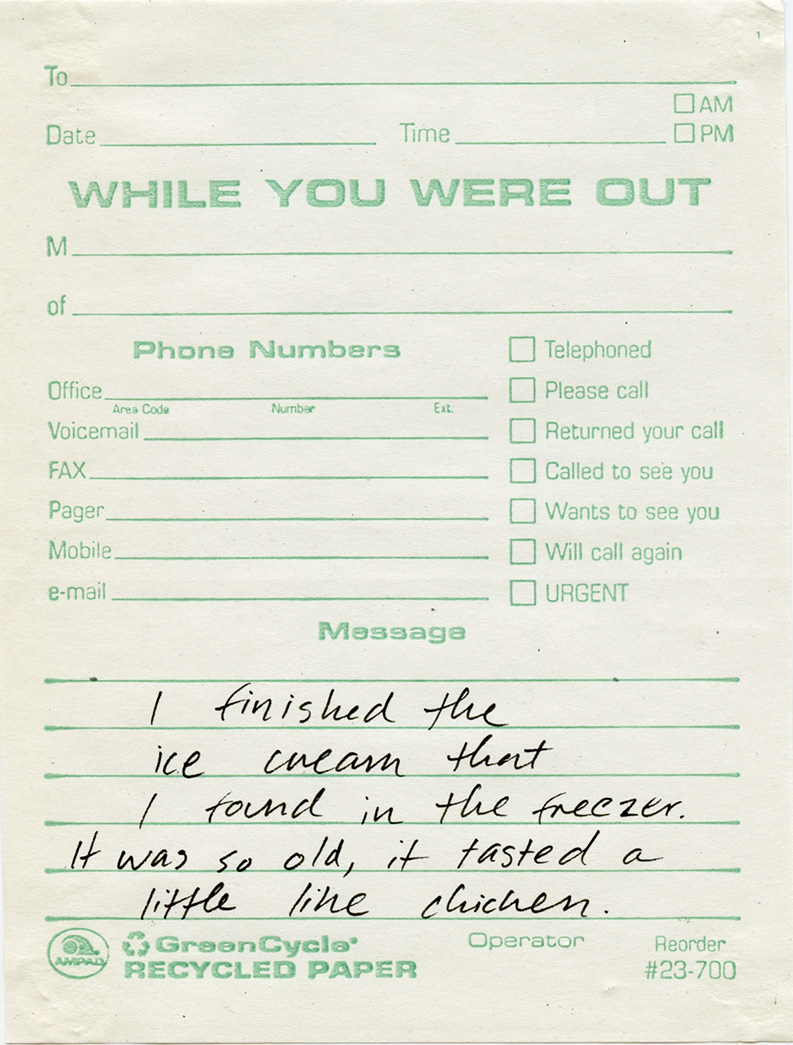 1
To
AM
Date Time PM
WHILE YOU WERE OUT
M
of
Phone Numbers
Telephoned
Office
Please call
Area Code Number Ext.
Voicemail
Returned your call
FAX
Called to see you
Pager
Wants to see you
Mobile
Will call again
e-mail
URGENT
Message
I finished the
ice cream that
I found in the freezer.
It was so old, it tasted a
little like chicken.
AMPAD
GreenCycle
RECYCLED PAPER
Operator
Reorder
#23-700